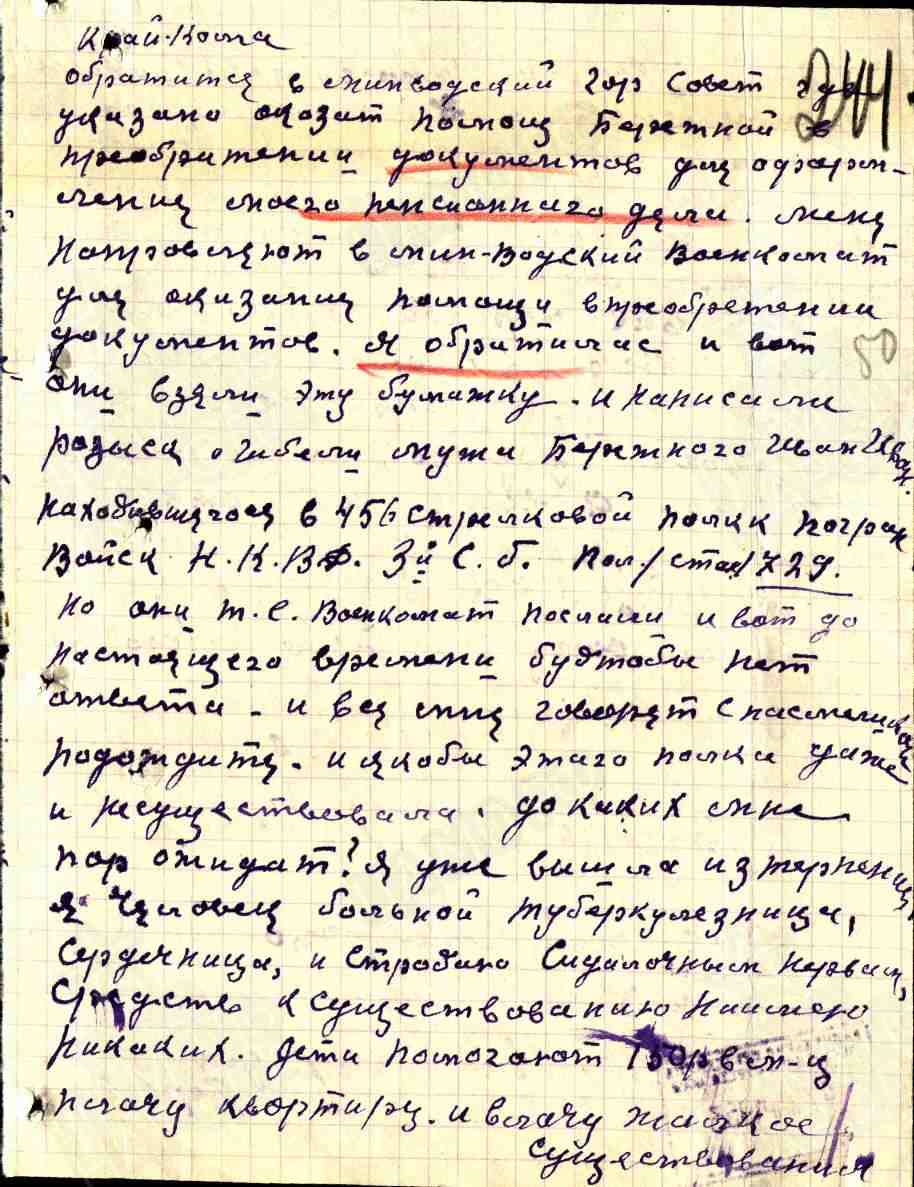 Край-Кома
обратитця в минводский гор Совет где 244.
указано оказат помощ Бережной в
преобритении документов для оформ-
ления моего пенсионнаго дела. меня
Напровляют в мин-Водский Военкомат
для оказания помощи в преобретении
документов. Я обратилас и вот 50
они взяли эту бумажку. и написали
розыск о гибели мужа Бережного Иван Иван.
находившегося в 456 стрелковой полкк погран
Войск Н.К.ВД. 3й С.б. Пол/стан/ 729.
но они т.е. Военкомат послали и вот до
настоящего времени будтобы нет
ответа. и все мне говорят с насмешкой
подождите. и якобы этаго полка даже
и несуществовала. до каких мне
пор ожидат? Я уже вышла из терпения,
я человек больной туберкулезница,
Сердечница, и страдаю Сидалочным нервам,
Средств к существованию Неимею
никаких. дети помогают 150р в м-ц
плачу квортиру. и влачу жалкое
существования